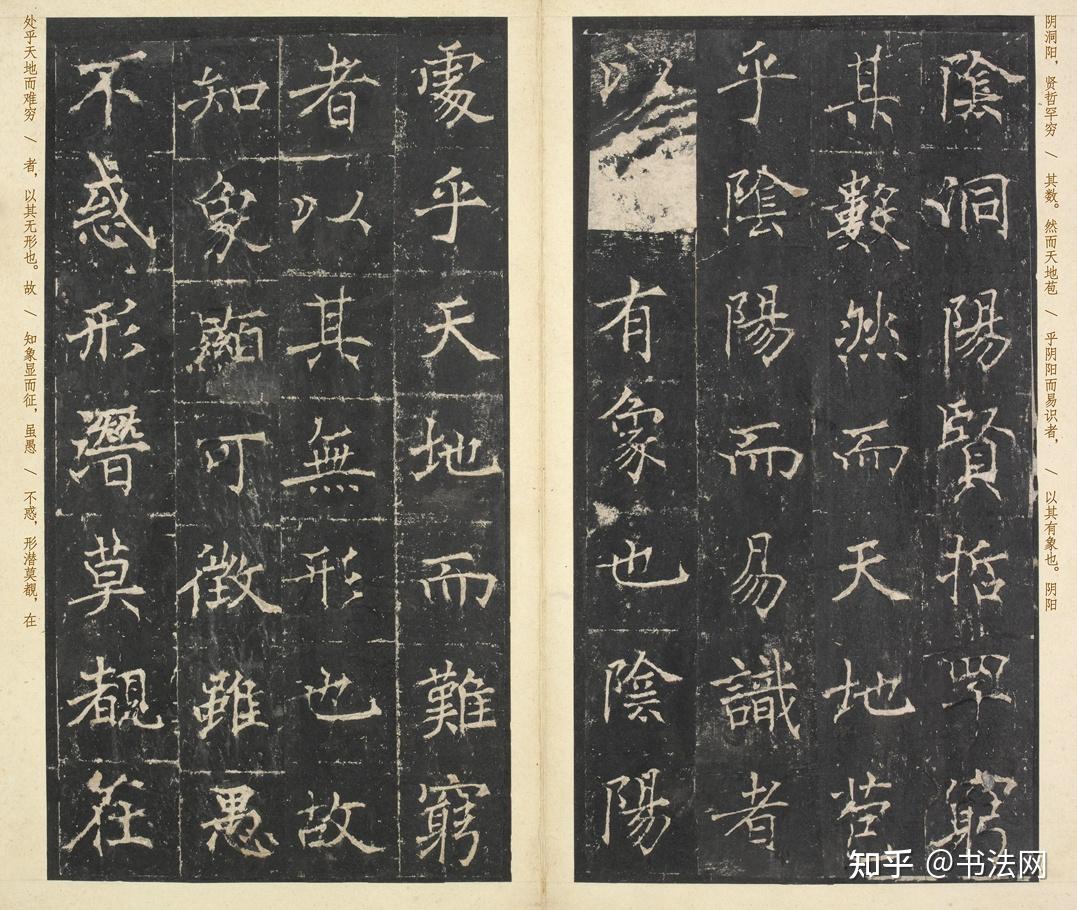 阴洞阳，贤哲罕穷 / 其数。然而天地苞 / 乎阴阳而易识者， / 以其有象也。阴阳
陰洞陽賢哲罕窮
其數然而天地苞
乎陰陽而易識者
以有象也陰陽
處乎天地而難窮
者以其無形也故
知象顯可徵雖愚
不惑形潛莫覩在
处乎天地而难穷 / 者，以其无形也。故 / 知象显而征，虽愚 / 不惑，形潜莫覩，在
知乎 @书法网